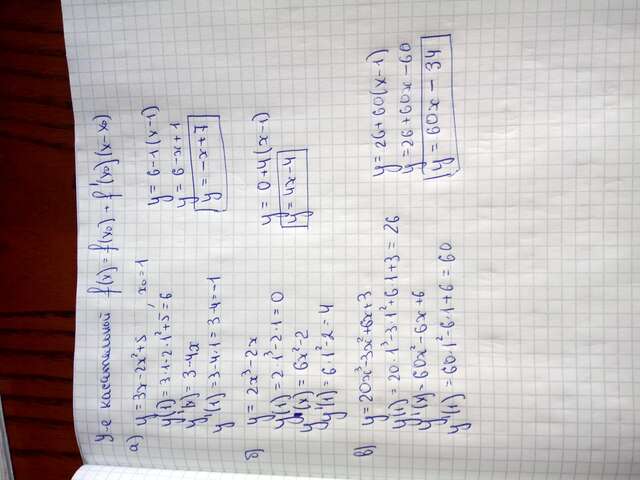 У-е касательной f(x) = f(x₀) + f'(x₀)(x-x₀)
а) y = 3x - 2x² + 5 x₀ = 1
y(1) = 3·1 - 2·1² + 5 = 6
y'(x) = 3 - 4x
y'(1) = 3 - 4·1 = 3 - 4 = -1
y = 6 - 1(x - 1)
y = 6 - x + 1
y = -x + 7
б) y = 2x³ - 2x
y(1) = 2·1³ - 2·1 = 0
y'(x) = 6x² - 2
y'(1) = 6·1² - 2 = 4
y = 0 + 4(x - 1)
y = 4x - 4
в) y = 20x³ - 3x² + 6x + 3
y(1) = 20·1³ - 3·1² + 6·1 + 3 = 26
y'(x) = 60x² - 6x + 6
y'(1) = 60·1² - 6·1 + 6 = 60
y = 26 + 60(x - 1)
y = 26 + 60x - 60
y = 60x - 34